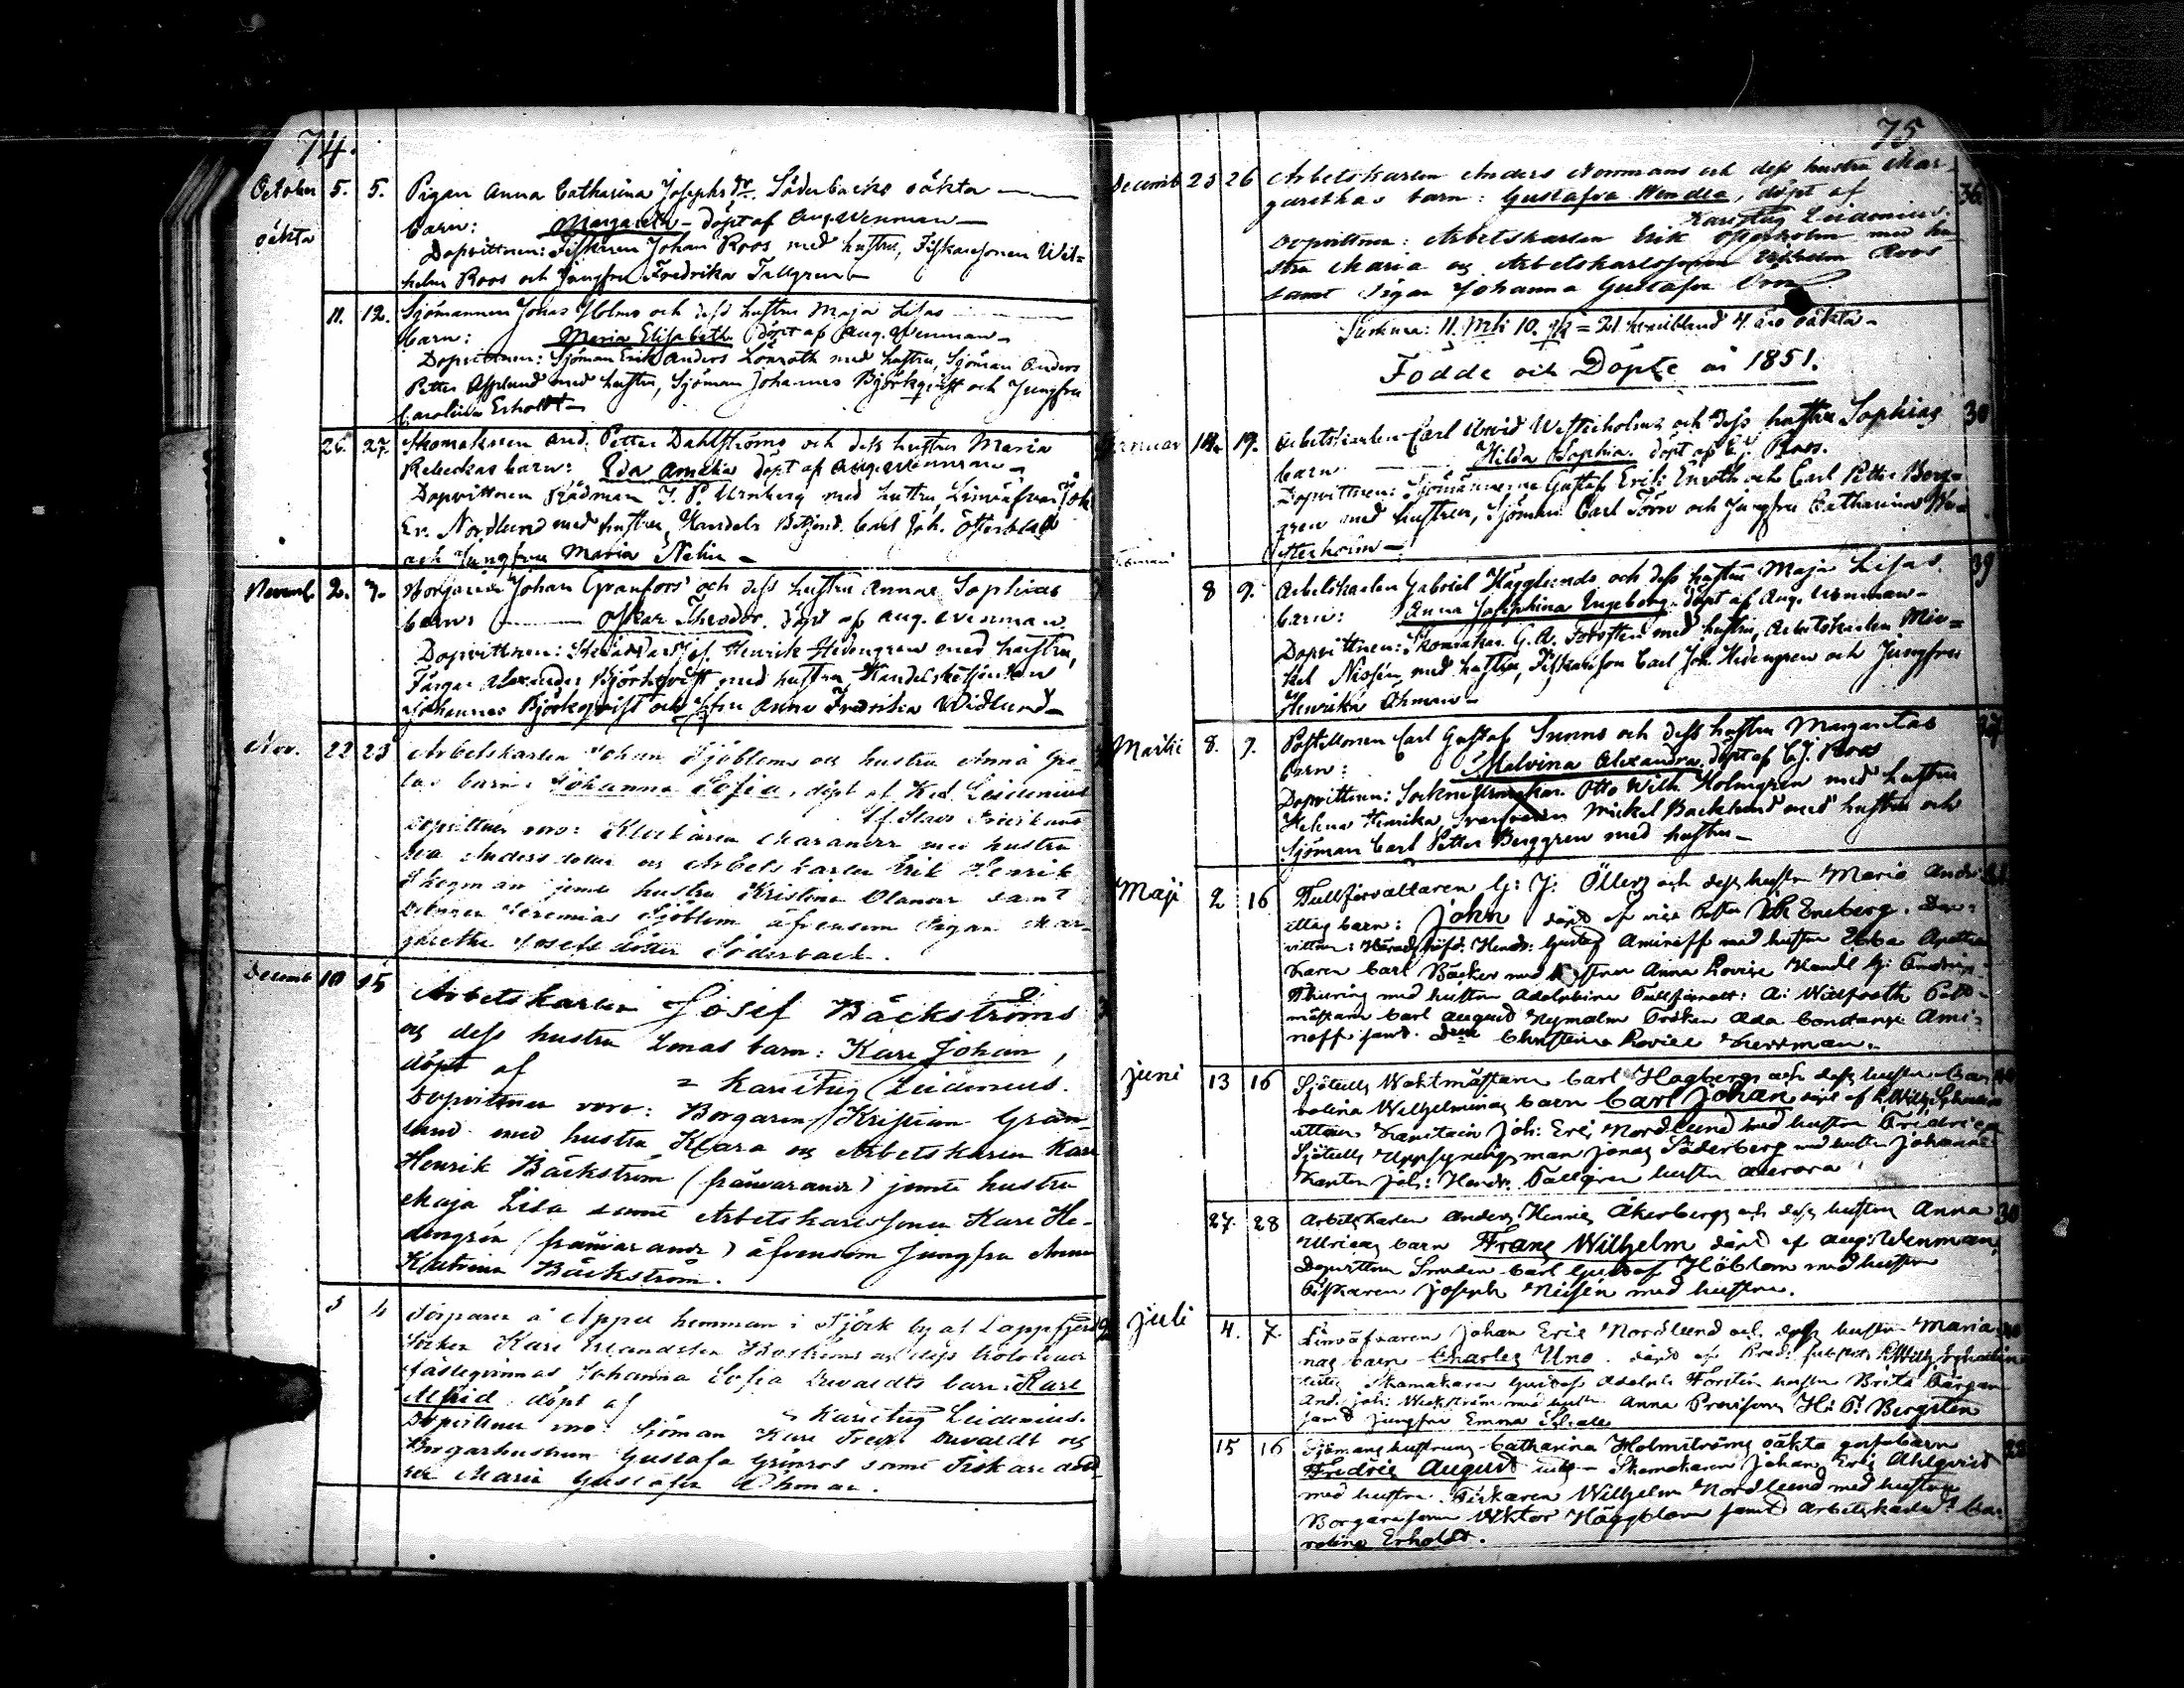 74.
October 5. 5. Pigan Anna Catharina Josephsdr. Söderbacks oäkta
oäkta barn: Margareth – döpt af Aug. Wenman –
Dopvittnen: Fiskaren Johan Roos med hustru, Fiskaresonen Wil=
helm Roos och Jungfru Fredrika Tallgren –
11. 12. Sjömannen Jonas Holms och dess hustru Maja Lisas
barn: Maria Elisabeth döpt af Aug. Wenman –
Dopvittnen: Sjöman Erik Anders Lönroth med hustru, Sjöman Anders
Petter Asplund med hustru, Sjöman Johannes Björkqvist och Jungfru
Carolina Erholdt –
26. 27. Skomakaren And. Petter Dahlströms och dess hustrus Maria
Rebeckas barn: Eda Amelia döpt af Aug. Wenman –
Dopvittnen Rådman J. P. Urnberg med hustru, Linväfvar Joh.
Er. Nordlund med hustru, Handels Betjent Carl Joh. Österblad
och Jungfru Maria Nelin –
Novemb. 2. 7. Borgaren Johan Granfors' och dess hustru Annas Sophias
barn: Oskar Theodor. döpt af Aug. Wenman
Dopvittnen: Henrik Hedengren med hustru,
Färgar Alexander Björkqvist med hustru, Handelsbetjenten
Johannes Björkqvist och Jfru Anna Fredrika Widlund –
Nov. 22 23 Arbetskarlen Johan Sjöbloms och hustru Anna Gre-
tas barn: Johanna Sofia, döpt af Leidenius
Dopvittnen voro: med hustru
Andersdotter och Arbetskarlen Erik Henrik
Skogman jemte hustru Kristina samt
Jeremias Sjöblom äfvensom Pigan Mar-
garetha Josefsdotter Söderback.
Decemb 10 15 Arbetskarlen Josef Bäckströms
och dess hustru Lenas barn: Karl Johan,
döpt af = Leidenius.
Dopvittnen voro: Borgaren Kristian Gran-
lund med hustru Klara och Arbetskarlen Karl
Henrik Bäckström (frånvarande) jemte hustru
Maja Lisa samt Arbetskarlssonen Karl He-
dengrén (frånvarande) äfvensom Jungfru Anna
Katrina Bäckström.
3 4 Torparen å hemman i Tjöck by af Lappfjerd
Socken Karl Erlandsson Boströms och dess
Johanna Sofia barn: Karl
Alfrid döpt af Leidenius.
Dopvittnen voro: Sjöman Karl och
Borgarhustrun Gustafa samt Fiskare
Maria Gustafva Öhman.
75.
Decemb 25 26 Arbetskarlen Anders Norrmans och dess hustru Mar-
garethas barn: Gustafva Wendla, döpt af 36
Leidenius.
Dopvittnen: Arbetskarlen Erik Österholm med hu-
stru Maria och Arbetskarlssonen Wilhelm Roos
samt Pigan Johanna Gustafva
Summa: 11. Mk 10. qk = 21. hvaribland 4. äro oäkta –
Födde och Döpte år 1851.
Januar 18. 19. Arbetskarlen Carl Arvid Westerholms och dess hustru Sophias 30
barn Hilda Sophia. döpt af C. J. Roos.
Dopvittnen: Sjömännerne Gustaf Erik Enroth och Carl Petter Berg=
gren med hustrur, Sjöman Carl Törn och Jungfru Catharina We=
sterholm –
8 9. Arbetskarlen Gabriel Häggblunds och dess hustru Maja Lisas 39
barn: Anna Josephina Engeborg. döpt af Aug. Wenman –
Dopvittnen: Skomakar. G. A. Forsten med hustru, Arbetskarlen Mic=
kel Nissén med hustru, Fiskarson Carl Joh. Hedengren och Jungfru
Henrika Öhman –
Martii 8. 9. Postillonen Carl Gustaf Sunns och dess hustru Margaretas 27
barn: Malvina Alexandra. döpt af C. J. Roos
Dopvittnen: Otto Wilh. Holmgren med hustru
Helena Henrika, Mickel Backlund med hustru och
Sjöman Carl Petter Berggren med hustru –
Maji 2 16 Tullförvaltaren G: J: Öllers och dess hustru Maria
barn: John döpt af vice Pastor Eneberg. Dop=
vittnen: Häradshöfd. Hendr: Gustaf Aminoff med hustru Ebba Apothe=
karen Carl Bäcker med hustru Anna Lovisa Handl
Thuring med hustru Adolphina Tullförvalt: A: Wilfroth Post=
mästare Carl August Nymalm Fröken Ada Constance Ami=
noff samt Christina Lovisa
Juni 13 16 Sjötulls Waktmästaren Carl Hagbergs och dess hustru Ca=
rolina Wilhelminas barn Carl Johan döpt af
vittnen Kapitain Joh: Eric Nordlund med hustru Fredrica
Sjötulls Uppsyningsman Jonas Söderberg med hustru Johanna
Kantor Joh: Hendr: Tallgren hustru Aurora
27. 28 Arbetskarlen Anders Henric Åkerbergs och dess hustru Anna 30
Ulricas barn Frans Wilhelm döpt af Aug: Wenman,
Dopvittnen Smeden Carl Gustaf Höblom med hustru
Fiskaren Joseph Neisén med hustru.
Juli 4. 7. Linväfvaren Johan Eric Nordlund och dess hustru Maria
nas barn Charles Uno. döpt af
Skomakaren Gustaf Adolph Forstén hustru Brita Färgaren
And. Joh: Weckström med hustru Anna Provisorn H: P: Bergsten
samt Jungfru Emma
15 16 Sjömans hustrun Catharina Holmströms oäkta gossebarn 22
Fredric August – Skomakaren Johan Eric Ahlqvist
med hustru Fiskaren Wilhelm Nordlund med hustru
Borgaresonen Wiktor Häggblom samt Arbetskarlsd. Ca=
rolina Erholdt.